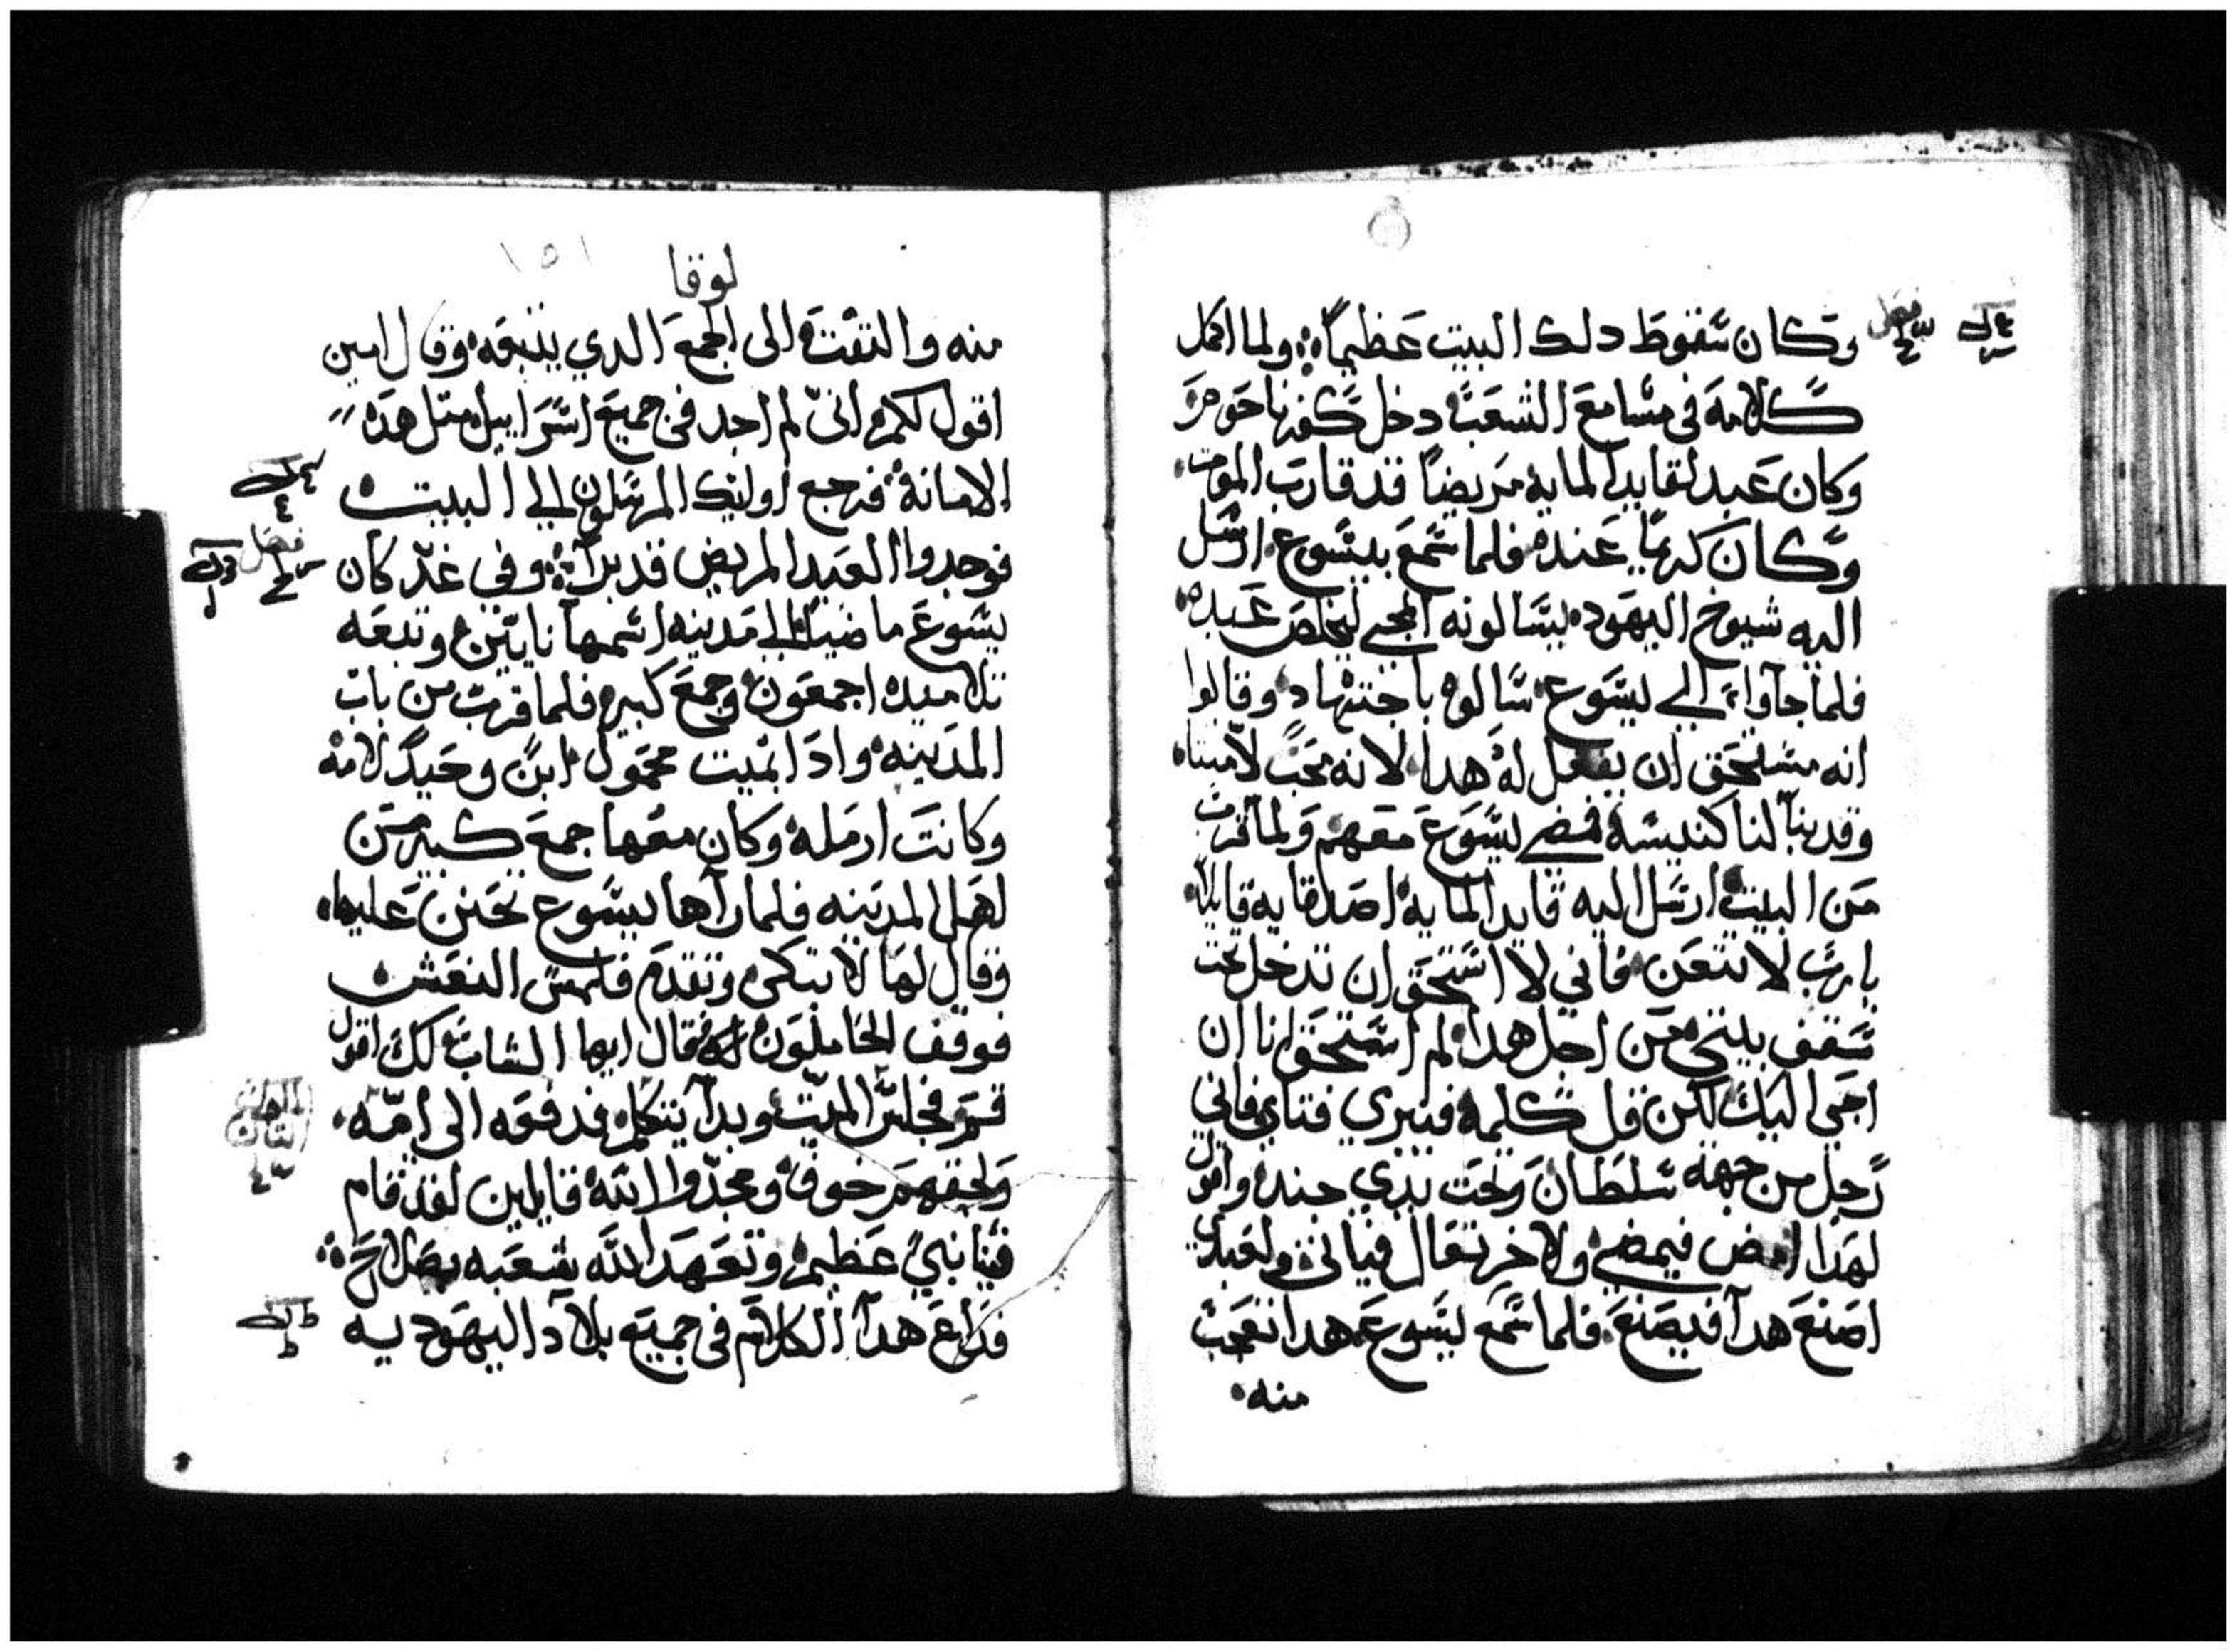 وكان سقوط دلك البيت عظيماً ولما اكمل
كلامه فى مسامع الشعب دخل كفرناحوم
وكان عبد لقايد الماية مريضاً قد قارب الموت
وكان كريماً عنده فلما سمع بيسوع ارسل
اليه شيوخ اليهود يسالونه المجى ليخلص عبده
فلما جآوا الى يسوع سالوه باجتهاد وقالوا
انه مستحق ان يفعل له هدا لانه محب لامتنا
وقد بنا لنا كنيسه فمضى يسوع معهم ولما قرب
من البيت ارسل اليه قايد الماية اصدقايه قايلاً
يا رب لا تتعن فاني لا استحق ان تدخل تحت
سقف بيتي من اجل هدا لم استحق انا ان
اجى اليك لكن قل كلمه فيبري فتاي فاني
رجل من جهة سلطان وتحت يدي جند واقول
لهدا امض فيمضى ولاخر تعال فياتى ولعبدي
اصنع هدا فيصنع فلما سمع يسوع هدا تعجب
منه
لوقا
١٥١
منه والتفت الى الجمع الدي يتبعه وقال امين
اقول لكم انى لم اجد فى جميع اسراييل متل هده
الامانة فرجع اوليك المرسلون الى البيت
فوجدوا العبد المريض قد برا وفي غد كان
يسوع ماضياً الى مدينه اسمها نايين وتبعه
تلاميده اجمعون وجمع كبير فلما قرب من باب
المدينه وادا بميت محمول ابن وحيد لامه
وكانت ارمله وكان معها جمع كبير من
اهل المدينه فلما رآها يسوع تحنن عليها
وقال لها لا تبكى وتقدم فلمس النعش
فوقف الحاملون له فقال ايها الشاب لك اقول
قم فجلس الميت وبدا يتكلم فدفعه الى امه
ولحقهم خوف ومجدوا الله قايلين لقد قام
فينا نبي عظيم وتعهد الله شعبه بصلاح
فداع هدا الكلام فى جميع بلاد اليهوديه